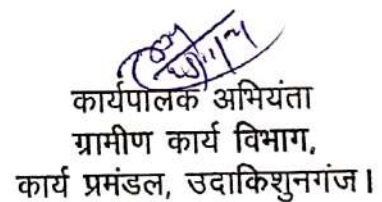 कार्यपालक अभियंता
ग्रामीण कार्य विभाग,
कार्य प्रमंडल, उदाकिशुनगंज।